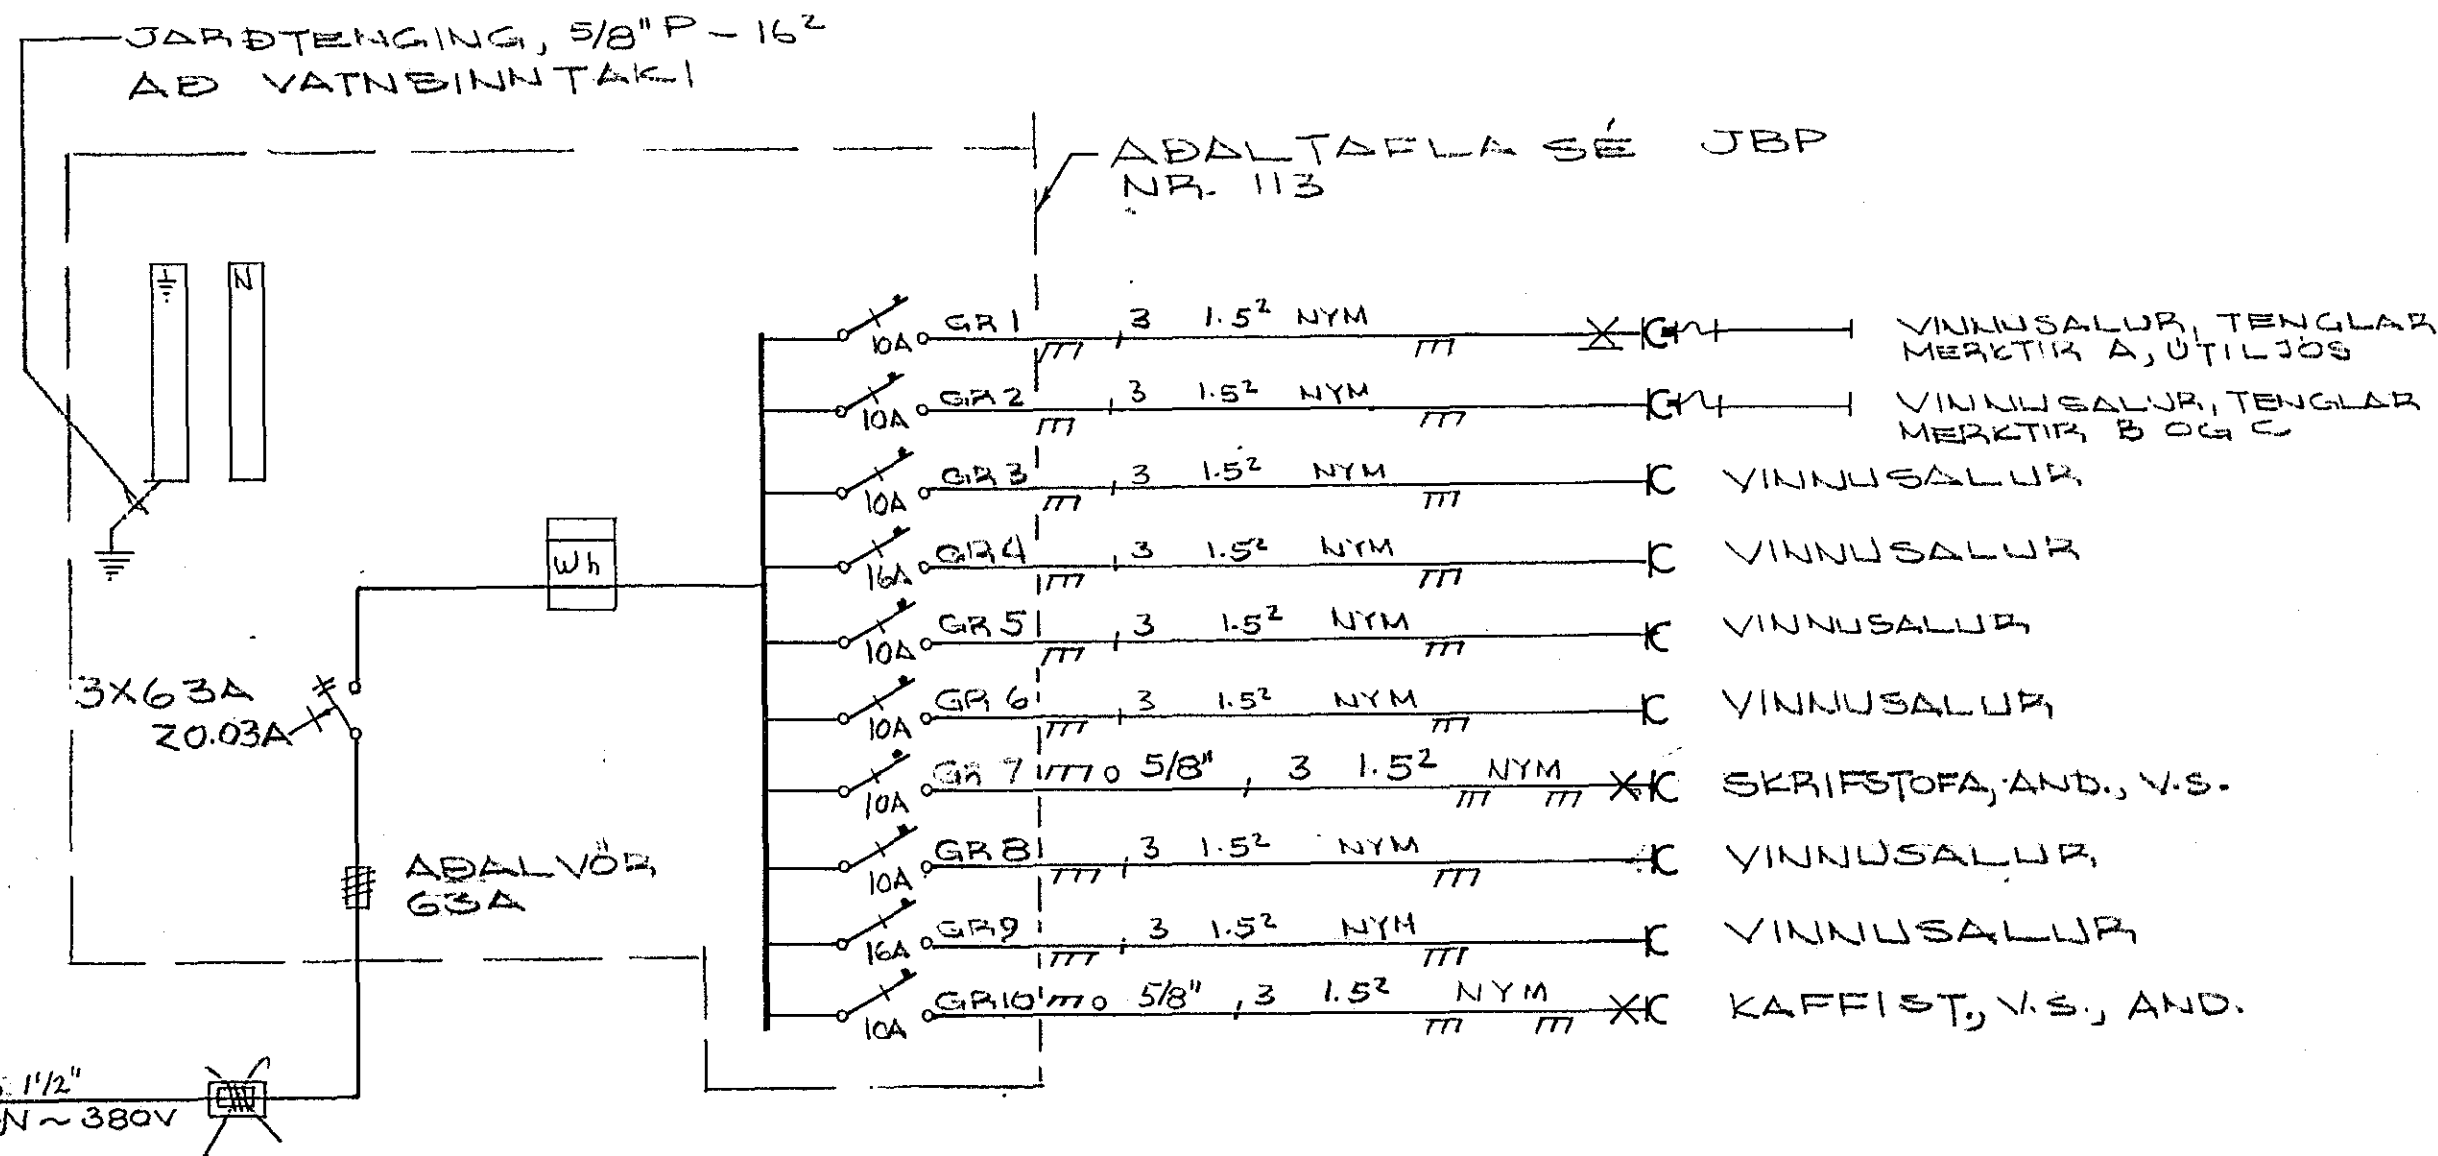 JARÐTENGING, 5/8" P - 16²
AÐ VATNSINNTAKI
AÐALTAFLA SÉ JBP
NR. 113
N
Wh
3X63A
Z0.03A
AÐALVÖR
63A
1 1/2"
N ~ 380V
10A GR 1 3 1.5² NYM VINNUSALUR, TENGLAR
MERKTIR A, ÚTILJÓS
10A GR 2 3 1.5² NYM VINNUSALUR, TENGLAR
MERKTIR B OG C
10A GR 3 3 1.5² NYM VINNUSALUR
16A GR 4 3 1.5² NYM VINNUSALUR
10A GR 5 3 1.5² NYM VINNUSALUR
10A GR 6 3 1.5² NYM VINNUSALUR
10A GR 7 5/8" 3 1.5² NYM SKRIFSTOFA, AND., V.S.
10A GR 8 3 1.5² NYM VINNUSALUR
16A GR 9 3 1.5² NYM VINNUSALUR
10A GR 10 5/8" 3 1.5² NYM KAFFIST., V.S., AND.